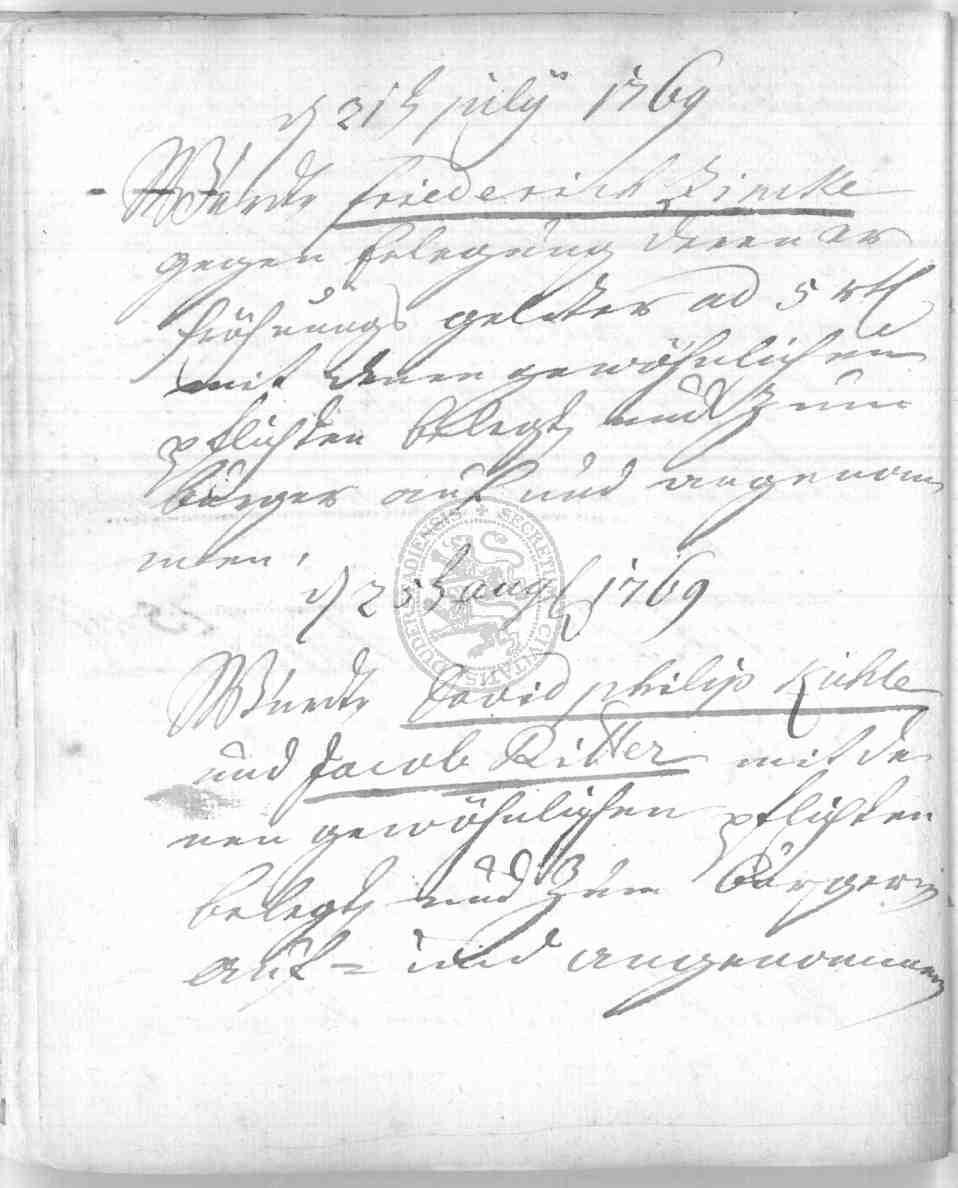 d 21t july 1769
Wurde friederich Zincke
gegen Erlegung deren er
fröhnungs gelder ad 5 rtl
mit denen gewöhnlichen
pflichten belegt und Zum
bürger auf und angenom
men.
d 25t aug 1769
Wurde David philip Kuhle
und Jacob Ritter mit de
nen gewöhnlichen pflichten
belegt und Zum bürgern
auf= und angenommen
SECRETUM CIVITATIS DUDERSTADIENSIS